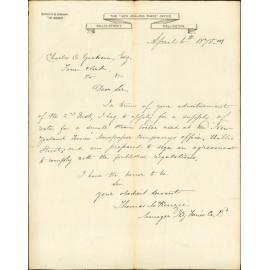 THE "NEW ZEALAND TIMES" OFFICE
WILLIS STREET,
WELLINGTON.
April 6th 1878
Charles C. Graham, Esq.
Town Clerk
Dear Sir
In terms of your advertisement
of the 2nd Inst, I beg to apply for a supply of
water for a small steam boiler used at the New
Zealand Times Newspaper Company's Office, Willis
Street, and am prepared to sign an agreement
to comply with the published regulations.
I have the honor to be
Sir
your obedient servant
Thomas McKenzie
Manager NZ Times Co Ld